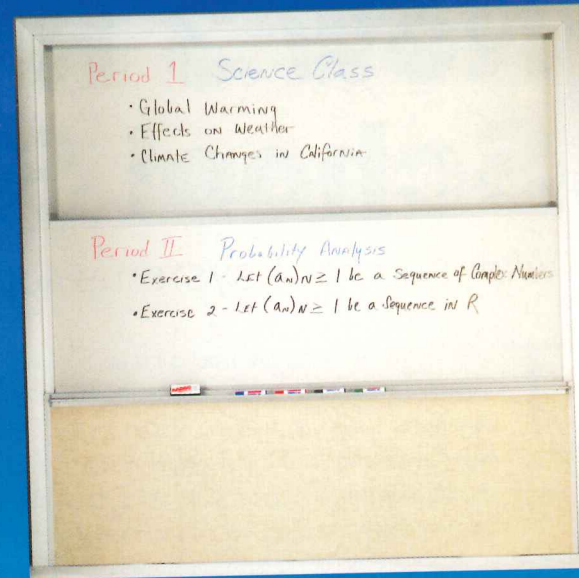 Period 1 Science Class
• Global Warming
• Effects on Weather
• Climate Changes in California
Period II Probability Analysis
• Exercise 1 - Let (an)N ≥ 1 be a Sequence of Complex Numbers
• Exercise 2 - Let (an)N ≥ 1 be a Sequence in R